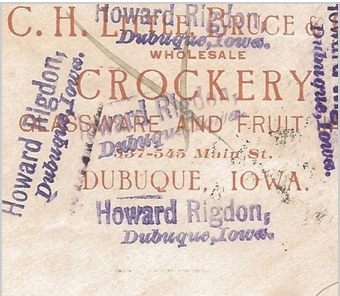 Howard Rigdon,
Dubuque, Iowa.
C. H. Little Bruce &
WHOLESALE
CROCKERY
GLASSWARE AND FRUIT
Howard Rigdon,
Dubuque, Iowa.
337-545 Main St.
DUBUQUE, IOWA.
Howard Rigdon,
Dubuque, Iowa.
Howard Rigdon,
Dubuque, Iowa.
Dubuque, Iowa.